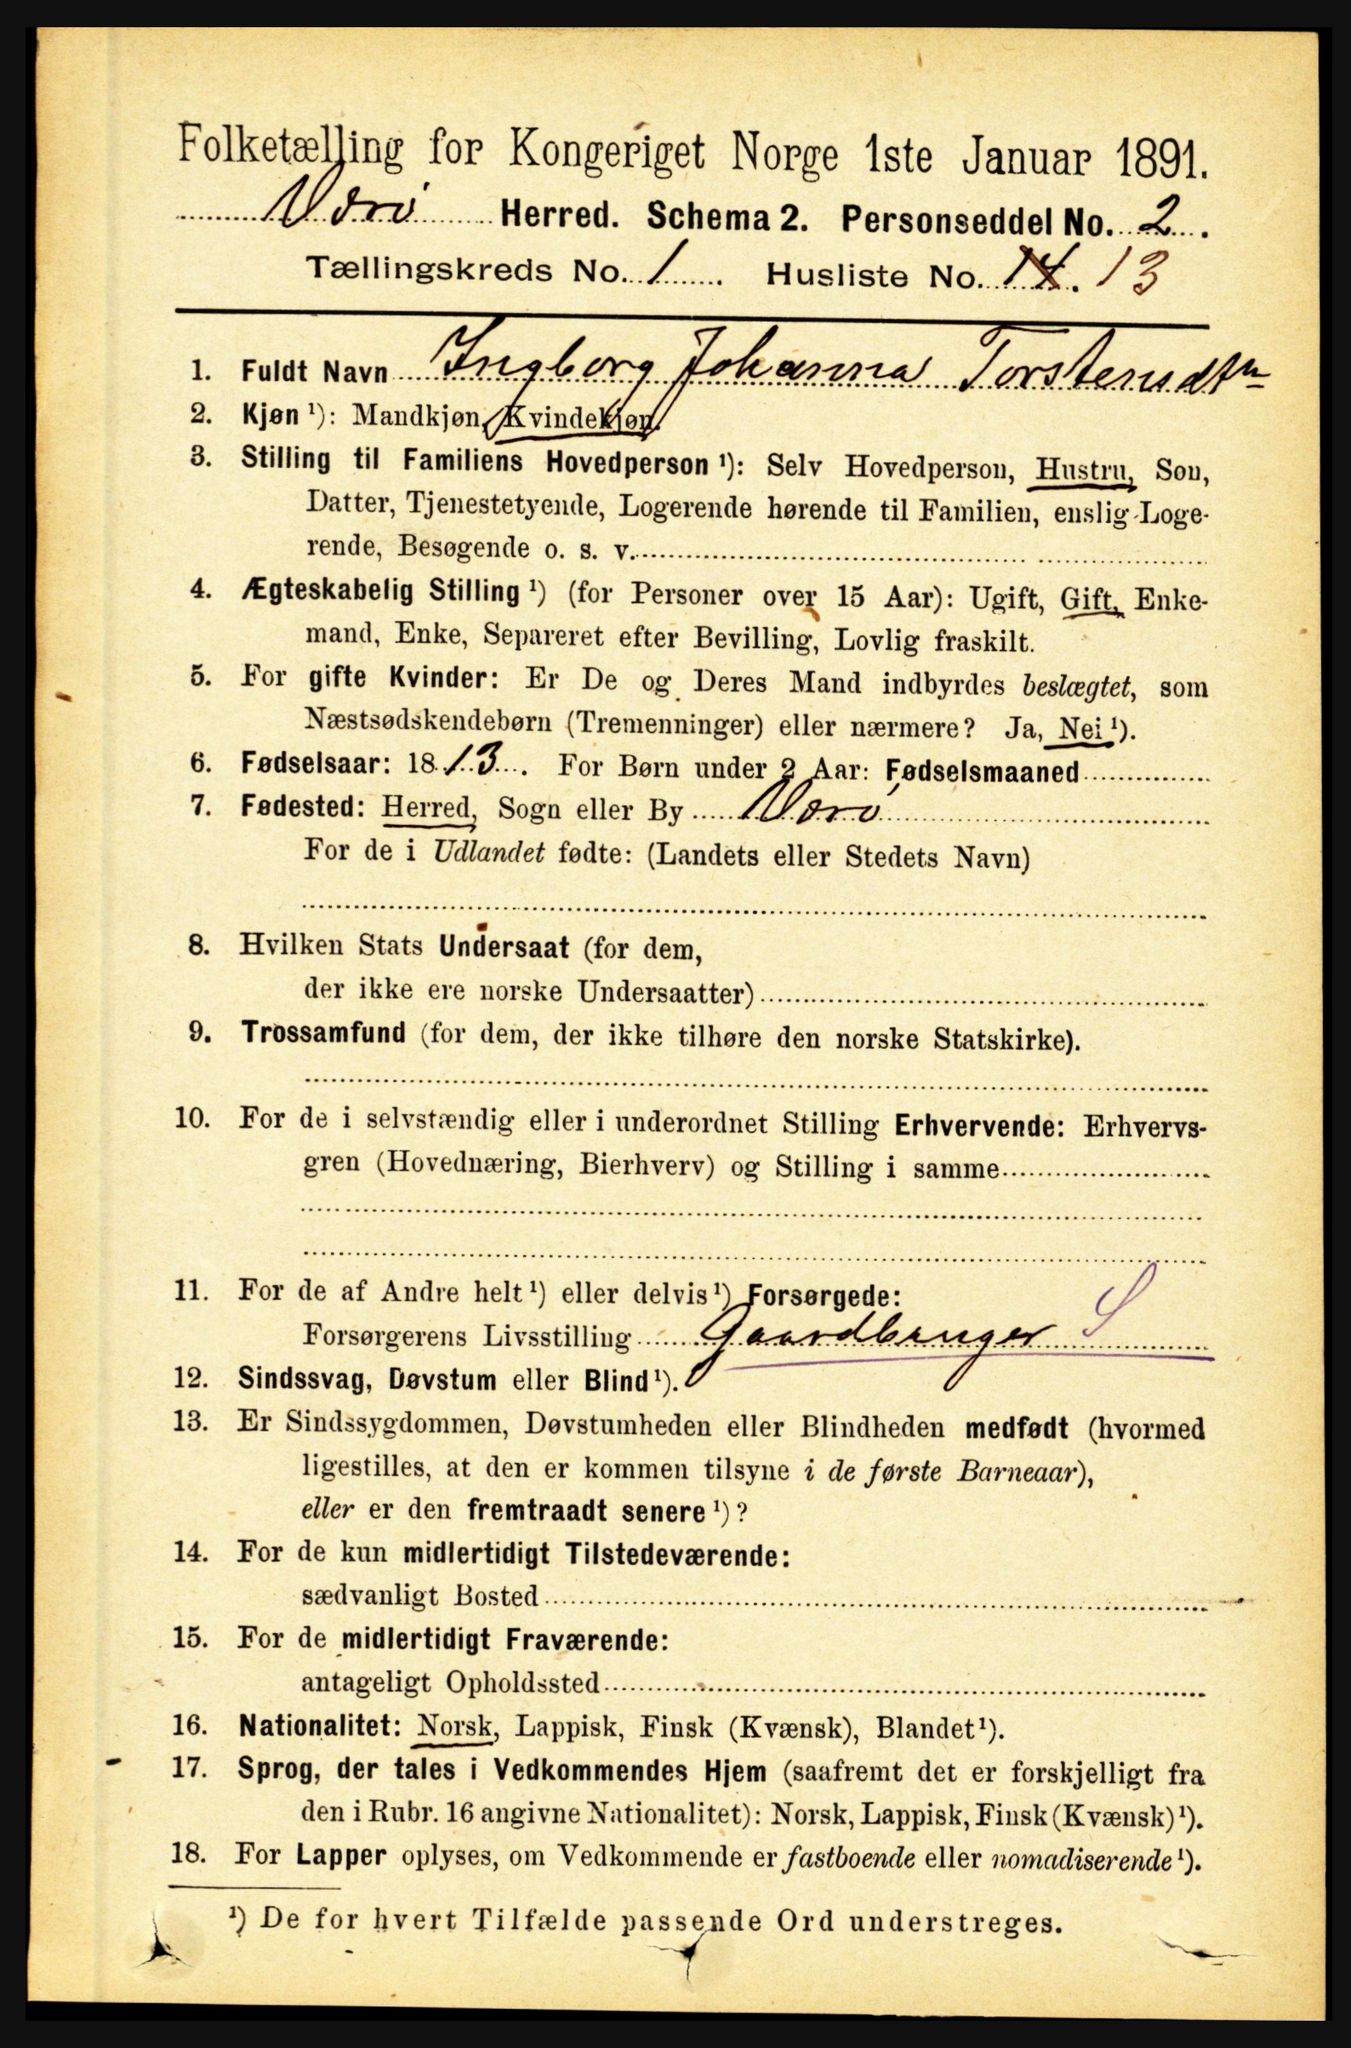 Folketælling for Kongeriget Norge 1ste Januar 1891.
Værø Herred. Schema 2. Personseddel No. 2.
Tællingskreds No. 1. Husliste No. 14. 13
1. Fuldt Navn Ingborg Johanna Torstensdtr
2. Kjøn ¹): Mandkjøn, Kvindekjøn.
3. Stilling til Familiens Hovedperson ¹): Selv Hovedperson, Hustru, Søn,
Datter, Tjenestetyende, Logerende hørende til Familien, enslig Loge-
rende, Besøgende o. s. v.
4. Ægteskabelig Stilling ¹) (for Personer over 15 Aar): Ugift, Gift, Enke-
mand, Enke, Separeret efter Bevilling, Lovlig fraskilt.
5. For gifte Kvinder: Er De og Deres Mand indbyrdes beslægtet, som
Næstsødskendebørn (Tremenninger) eller nærmere? Ja, Nei ¹).
6. Fødselsaar: 1813. For Børn under 2 Aar: Fødselsmaaned
7. Fødested: Herred, Sogn eller By Værø
For de i Udlandet fødte: (Landets eller Stedets Navn)
8. Hvilken Stats Undersaat (for dem,
der ikke ere norske Undersaatter)
9. Trossamfund (for dem, der ikke tilhøre den norske Statskirke).
10. For de i selvstændig eller i underordnet Stilling Erhvervende: Erhvervs-
gren (Hovednæring, Bierhverv) og Stilling i samme
11. For de af Andre helt ¹) eller delvis ¹) Forsørgede:
Forsørgerens Livsstilling Gaardbruger S
12. Sindssvag, Døvstum eller Blind ¹).
13. Er Sindssygdommen, Døvstumheden eller Blindheden medfødt (hvormed
ligestilles, at den er kommen tilsyne i de første Barneaar),
eller er den fremtraadt senere ¹)?
14. For de kun midlertidigt Tilstedeværende:
sædvanligt Bosted
15. For de midlertidigt Fraværende:
antageligt Opholdssted
16. Nationalitet: Norsk, Lappisk, Finsk (Kvænsk), Blandet ¹).
17. Sprog, der tales i Vedkommendes Hjem (saafremt det er forskjelligt fra
den i Rubr. 16 angivne Nationalitet): Norsk, Lappisk, Finsk (Kvænsk) ¹).
18. For Lapper oplyses, om Vedkommende er fastboende eller nomadiserende ¹).
¹) De for hvert Tilfælde passende Ord understreges.